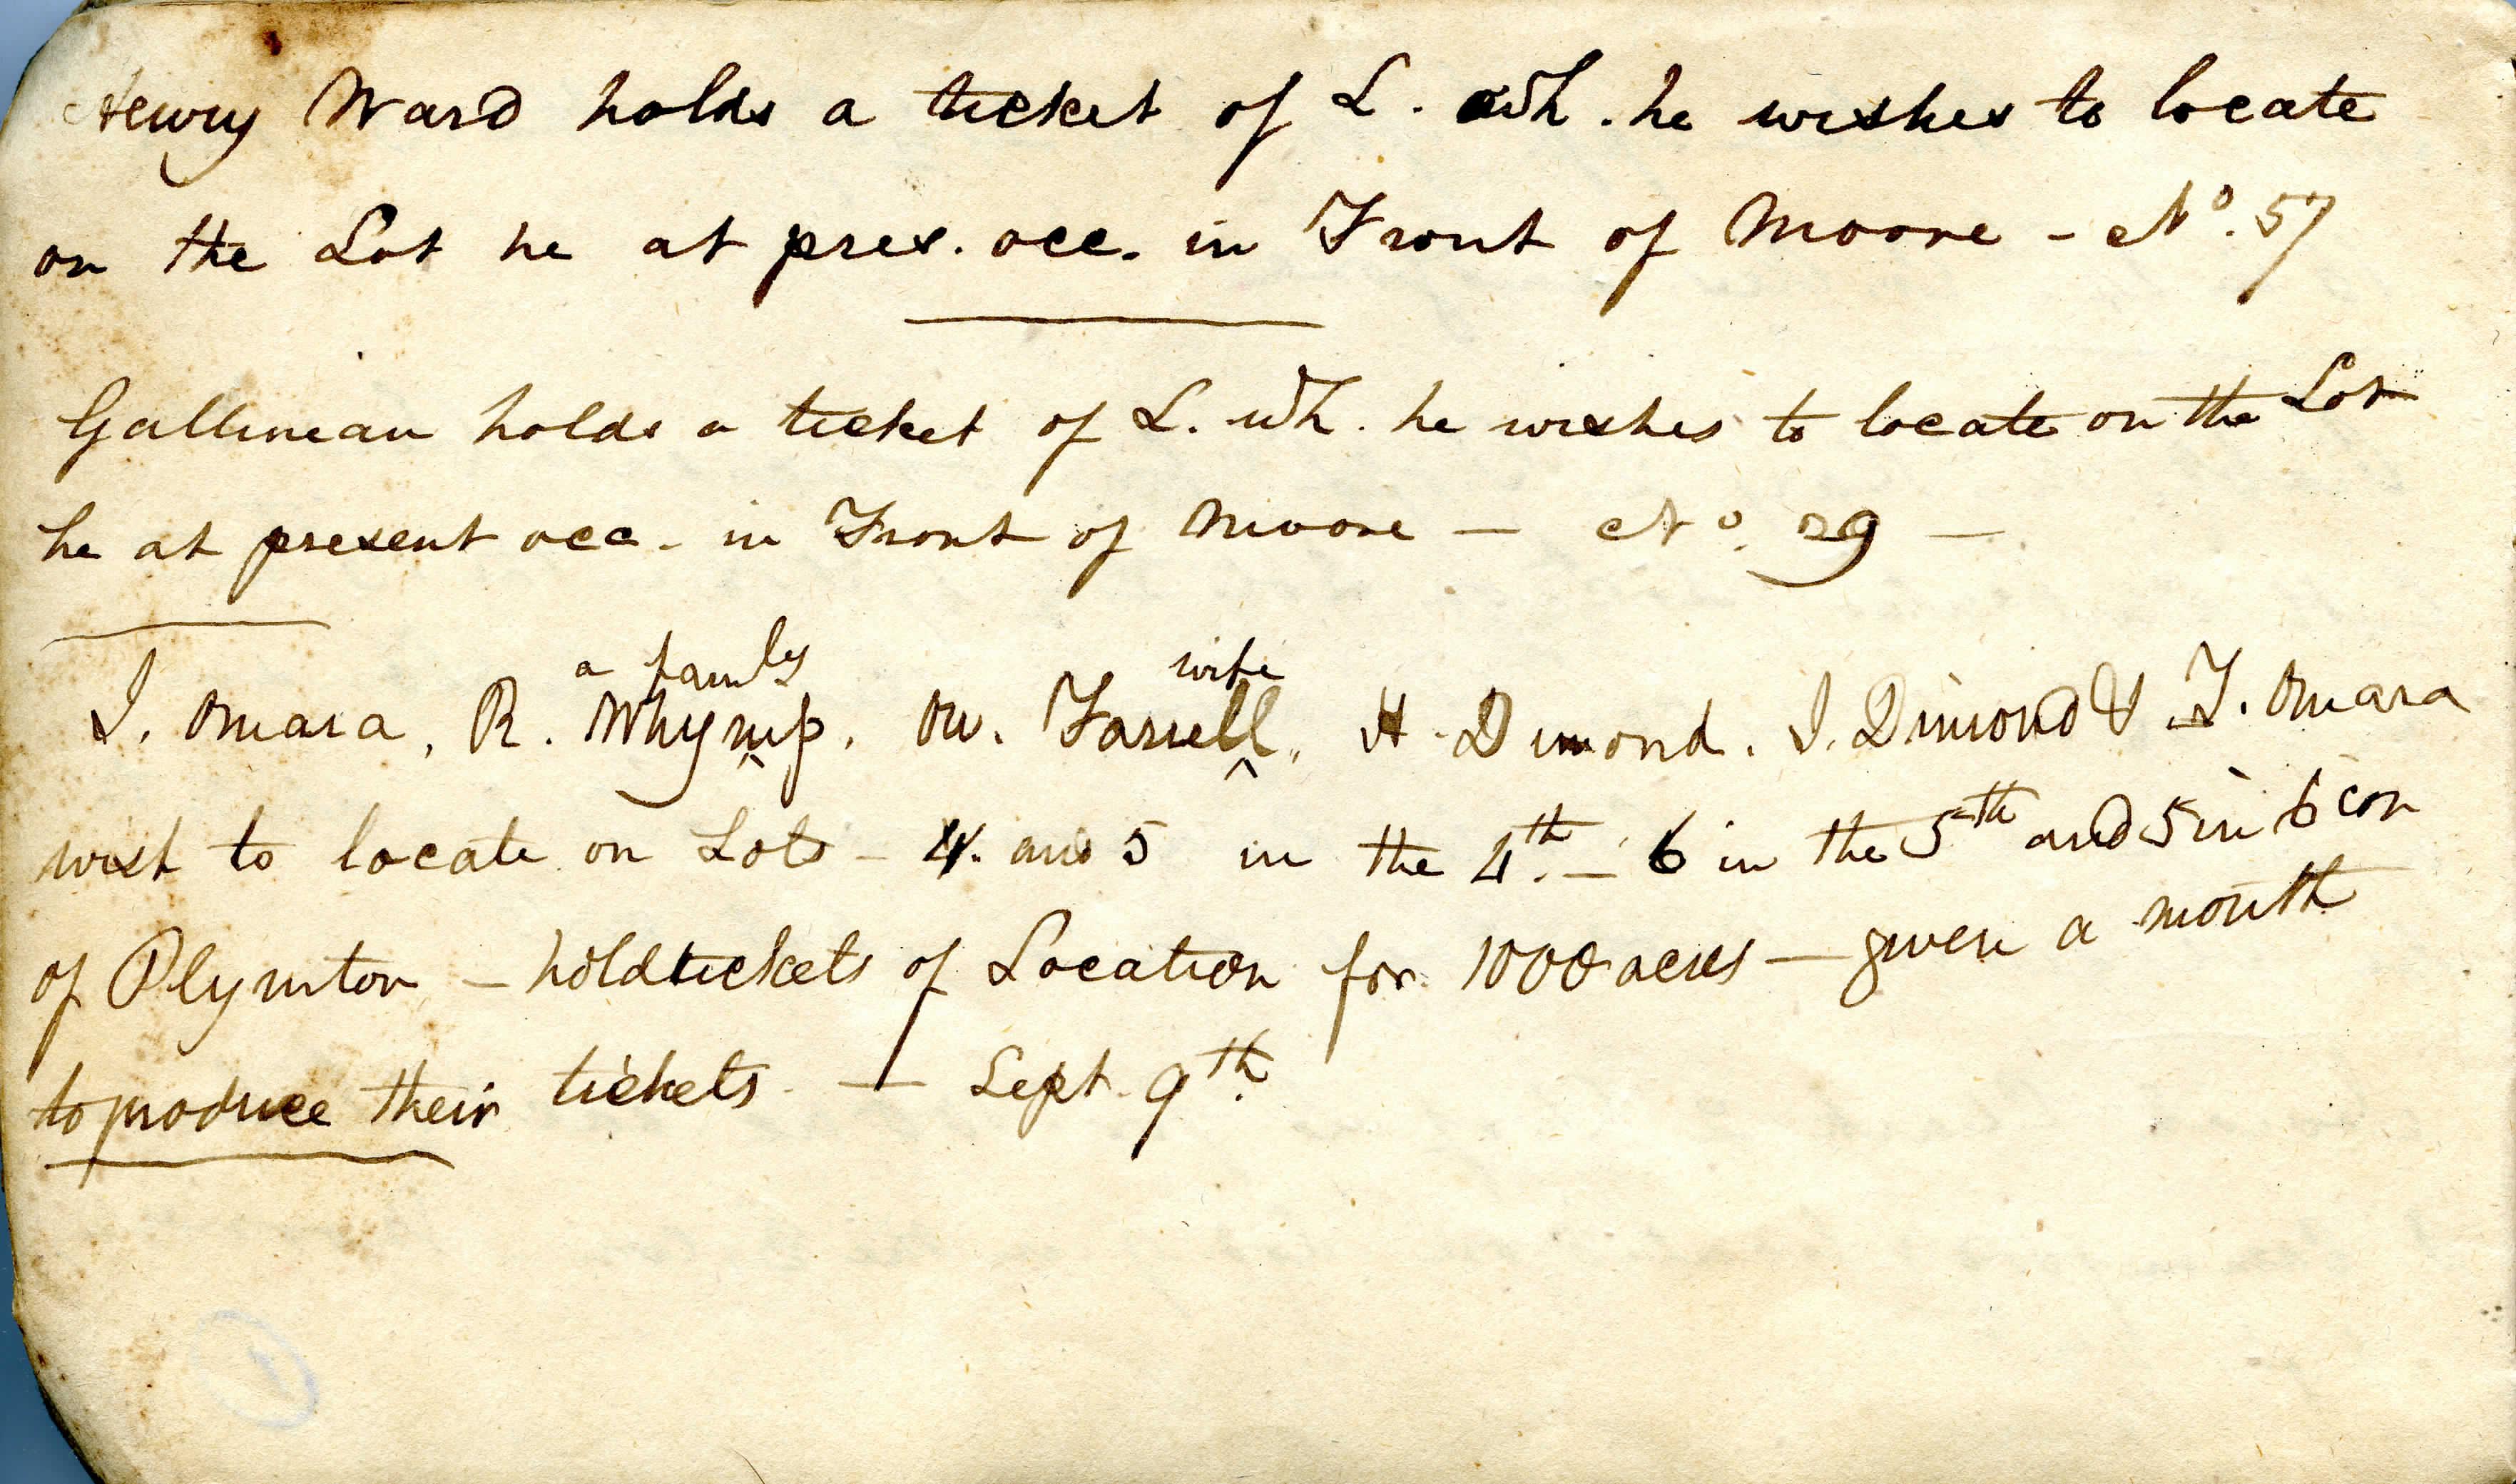 Henry Ward holds a ticket of L. wh. he wishes to locate
on the Lot he at pres. occ. in Front of Moore - No. 57
Gallinean holds a ticket of L. wh. he wishes to locate on the Lot
he at present occ. in Front of Moore — No. 29 —
a family wife
I. Omara, R. Whymp, M. Farrell, H. Dimond. I. Dimond & T. Omara
wish to locate on Lots - 4. and 5 in the 4th. - 6 in the 5th and 5 in 6 con
of Plymton - hold tickets of Location for 1000 acres — given a month
to produce their tickets. — Sept. 9th.